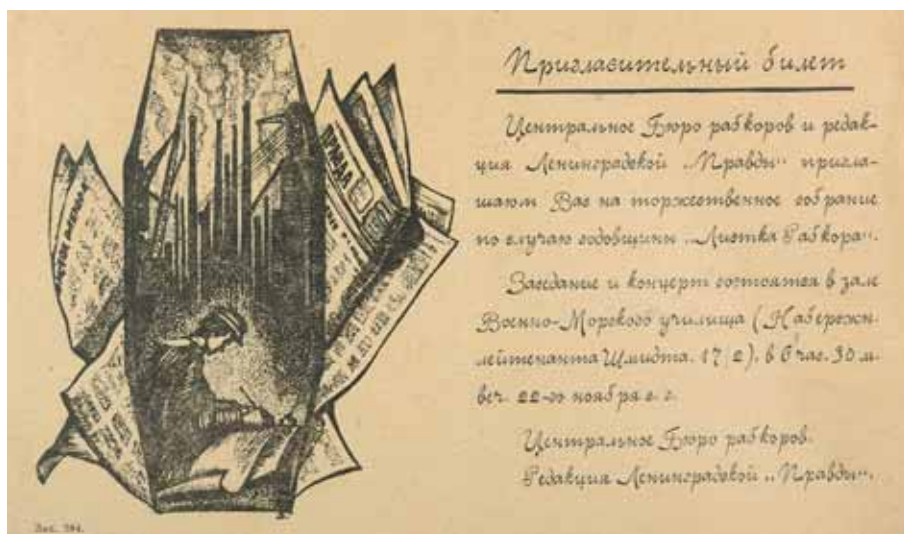 ПРАВДА
Пригласительный билет
Центральное Бюро рабкоров и редак-
ция Ленинградской „Правды“ пригла-
шают Вас на торжественное собрание
по случаю годовщины „Листка Рабкора“.
Заседание и концерт состоятся в зале
Военно-Морского училища (Набережн.
лейтенанта Шмидта. 17|2). в 6 час. 30 м.
веч. 22-го ноября с. г.
Центральное Бюро рабкоров.
Редакция Ленинградской „Правды“.
Зак. 594.